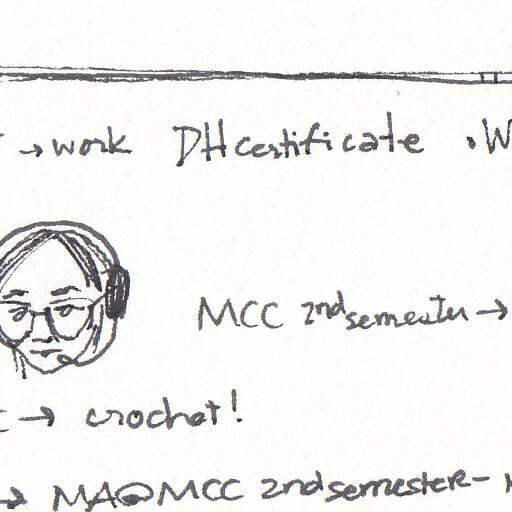 →work DH certificate •W
MCC 2nd semester →
→ crochet!
→ MA@MCC 2nd semester-